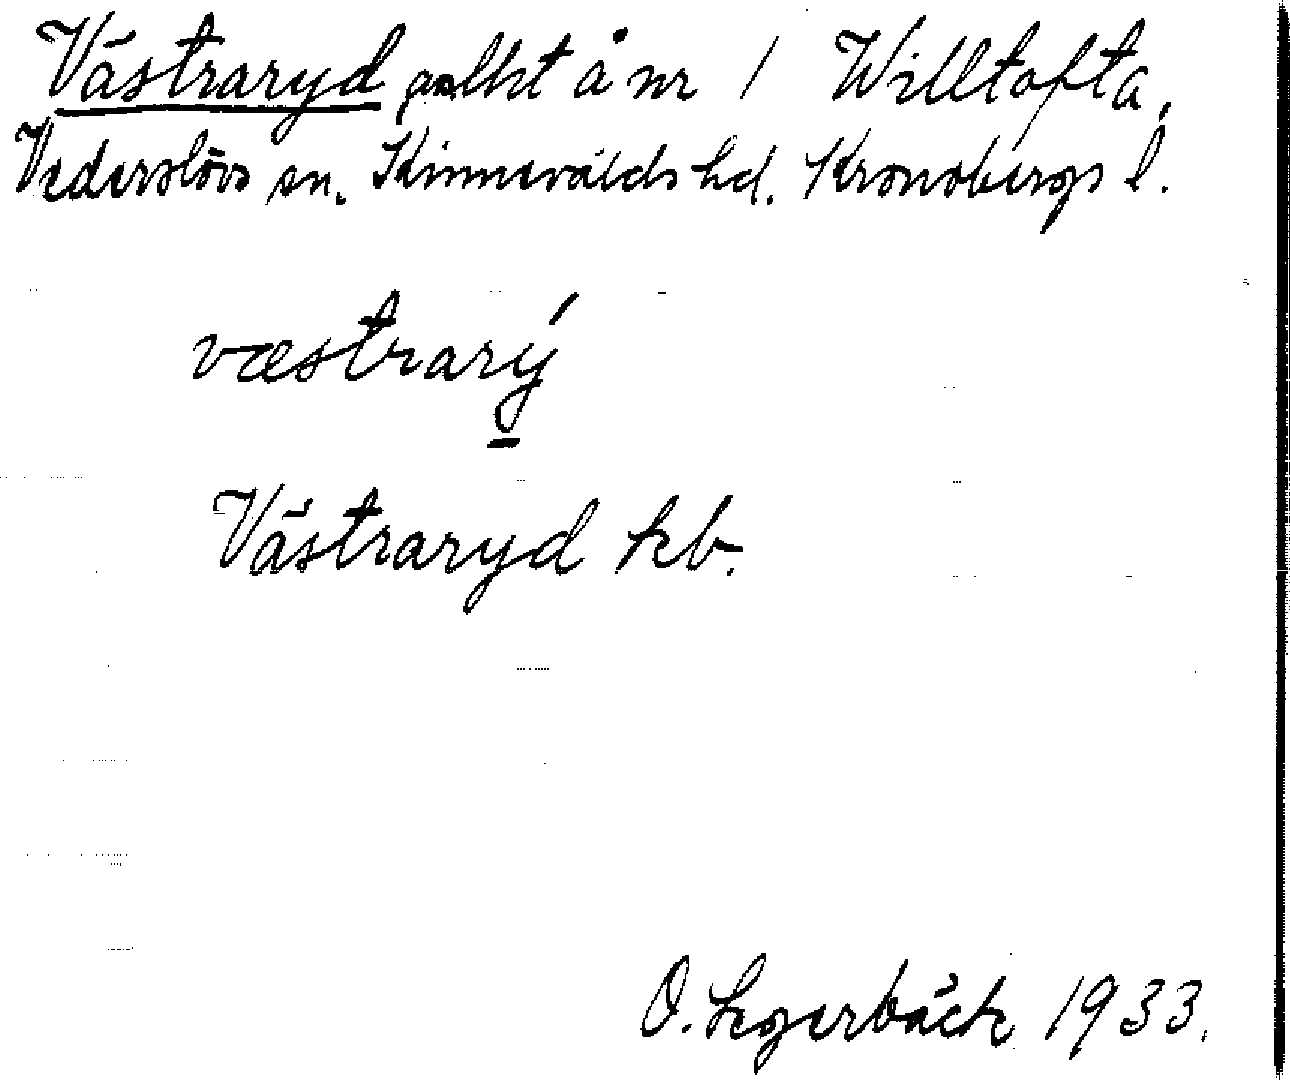 Västraryd p.lht å nr 1 Willtofta,
Vederslövs sn. Kinnevalds hd. Kronobergs l.
væstrarý
Västraryd kb.
O. Segerbäck 1933.